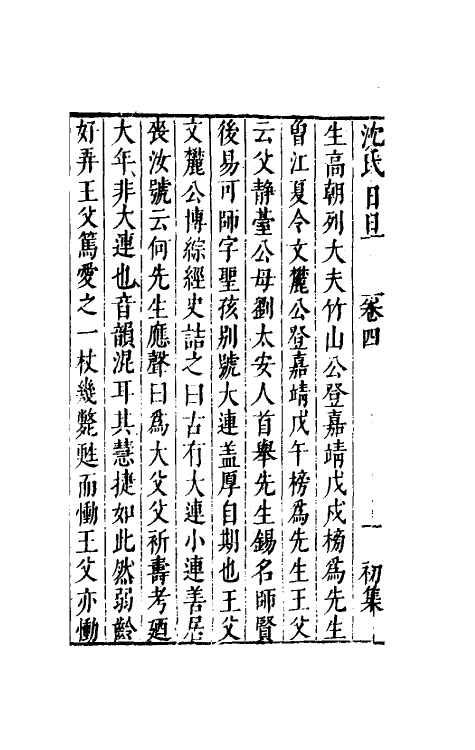 沈氏弋說 卷四 一 初集
生高朝列大夫竹山公登嘉靖戊戌榜爲先生
曽江夏令文麓公登嘉靖戊午榜爲先生王父
云父静臺公母劉太安人首舉先生錫名師賢
後易可師字聖孩别號大連盖厚自期也王父
文麓公博綜經史詰之曰古有大連小連善居
喪汝號云何先生應聲曰爲大父父祈壽考廼
大年非大連也音韻混耳其慧捷如此然弱齡
好弄王父篤愛之一杖幾斃甦而慟王父亦慟